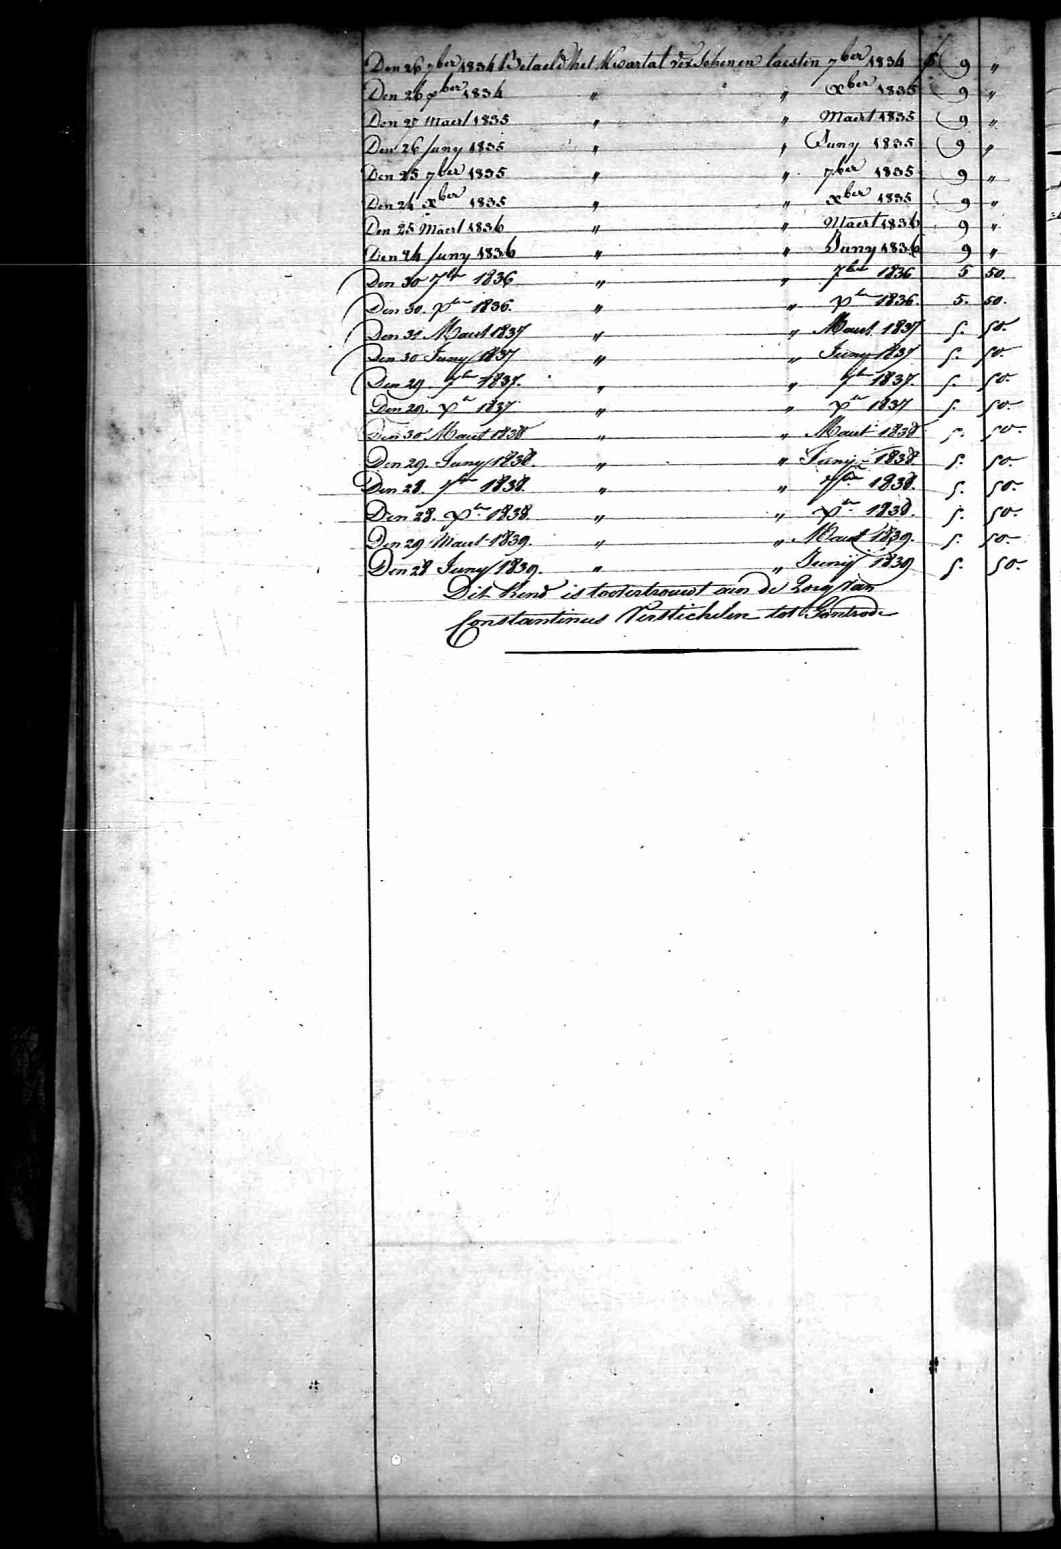 Den 26 7ber 1834 Betaeld het Kwartal verschenen laesten 7ber 1834 f 9 "
Den 26 xber 1834 " " xber 1835 9 "
Den 25 Maert 1835 " " Maert 1835 9 "
Den 26 Juny 1835 " " Juny 1835 9 "
Den 25 7ber 1835 " " 7ber 1835 9 "
Den 24 xber 1835 " " xber 1835 9 "
Den 25 Maert 1836 " " Maert 1836 9 "
Den 24 Juny 1836 " " Juny 1836 9 "
Den 30 7ber 1836 " " 7ber 1836 5 50.
Den 30. xber 1836. " " xber 1836 5. 50.
Den 31 Maert 1837 " " Maert 1837 5. 50.
Den 30 Juny 1837 " " Juny 1837 5. 50.
Den 29 7br 1837. " " 7br 1837. 5. 50.
Den 29. xbr 1837 " " xbr 1837 5. 50.
Den 30 Maert 1838 " " Maert 1838 5. 50.
Den 29. Juny 1838. " " Junij 1838. 5. 50.
Den 28. 7br 1838. " " 7br 1838. 5. 50.
Den 28. xbr 1838. " " xbr 1838. 5. 50.
Den 29 Maert 1839. " " Maert 1839. 5. 50.
Den 28 Juny 1839. " " Junij 1839 5. 50.
Dit kend is toevertrouwt aen de Zorg van
Constantinus Verstichelen tot Gontrode